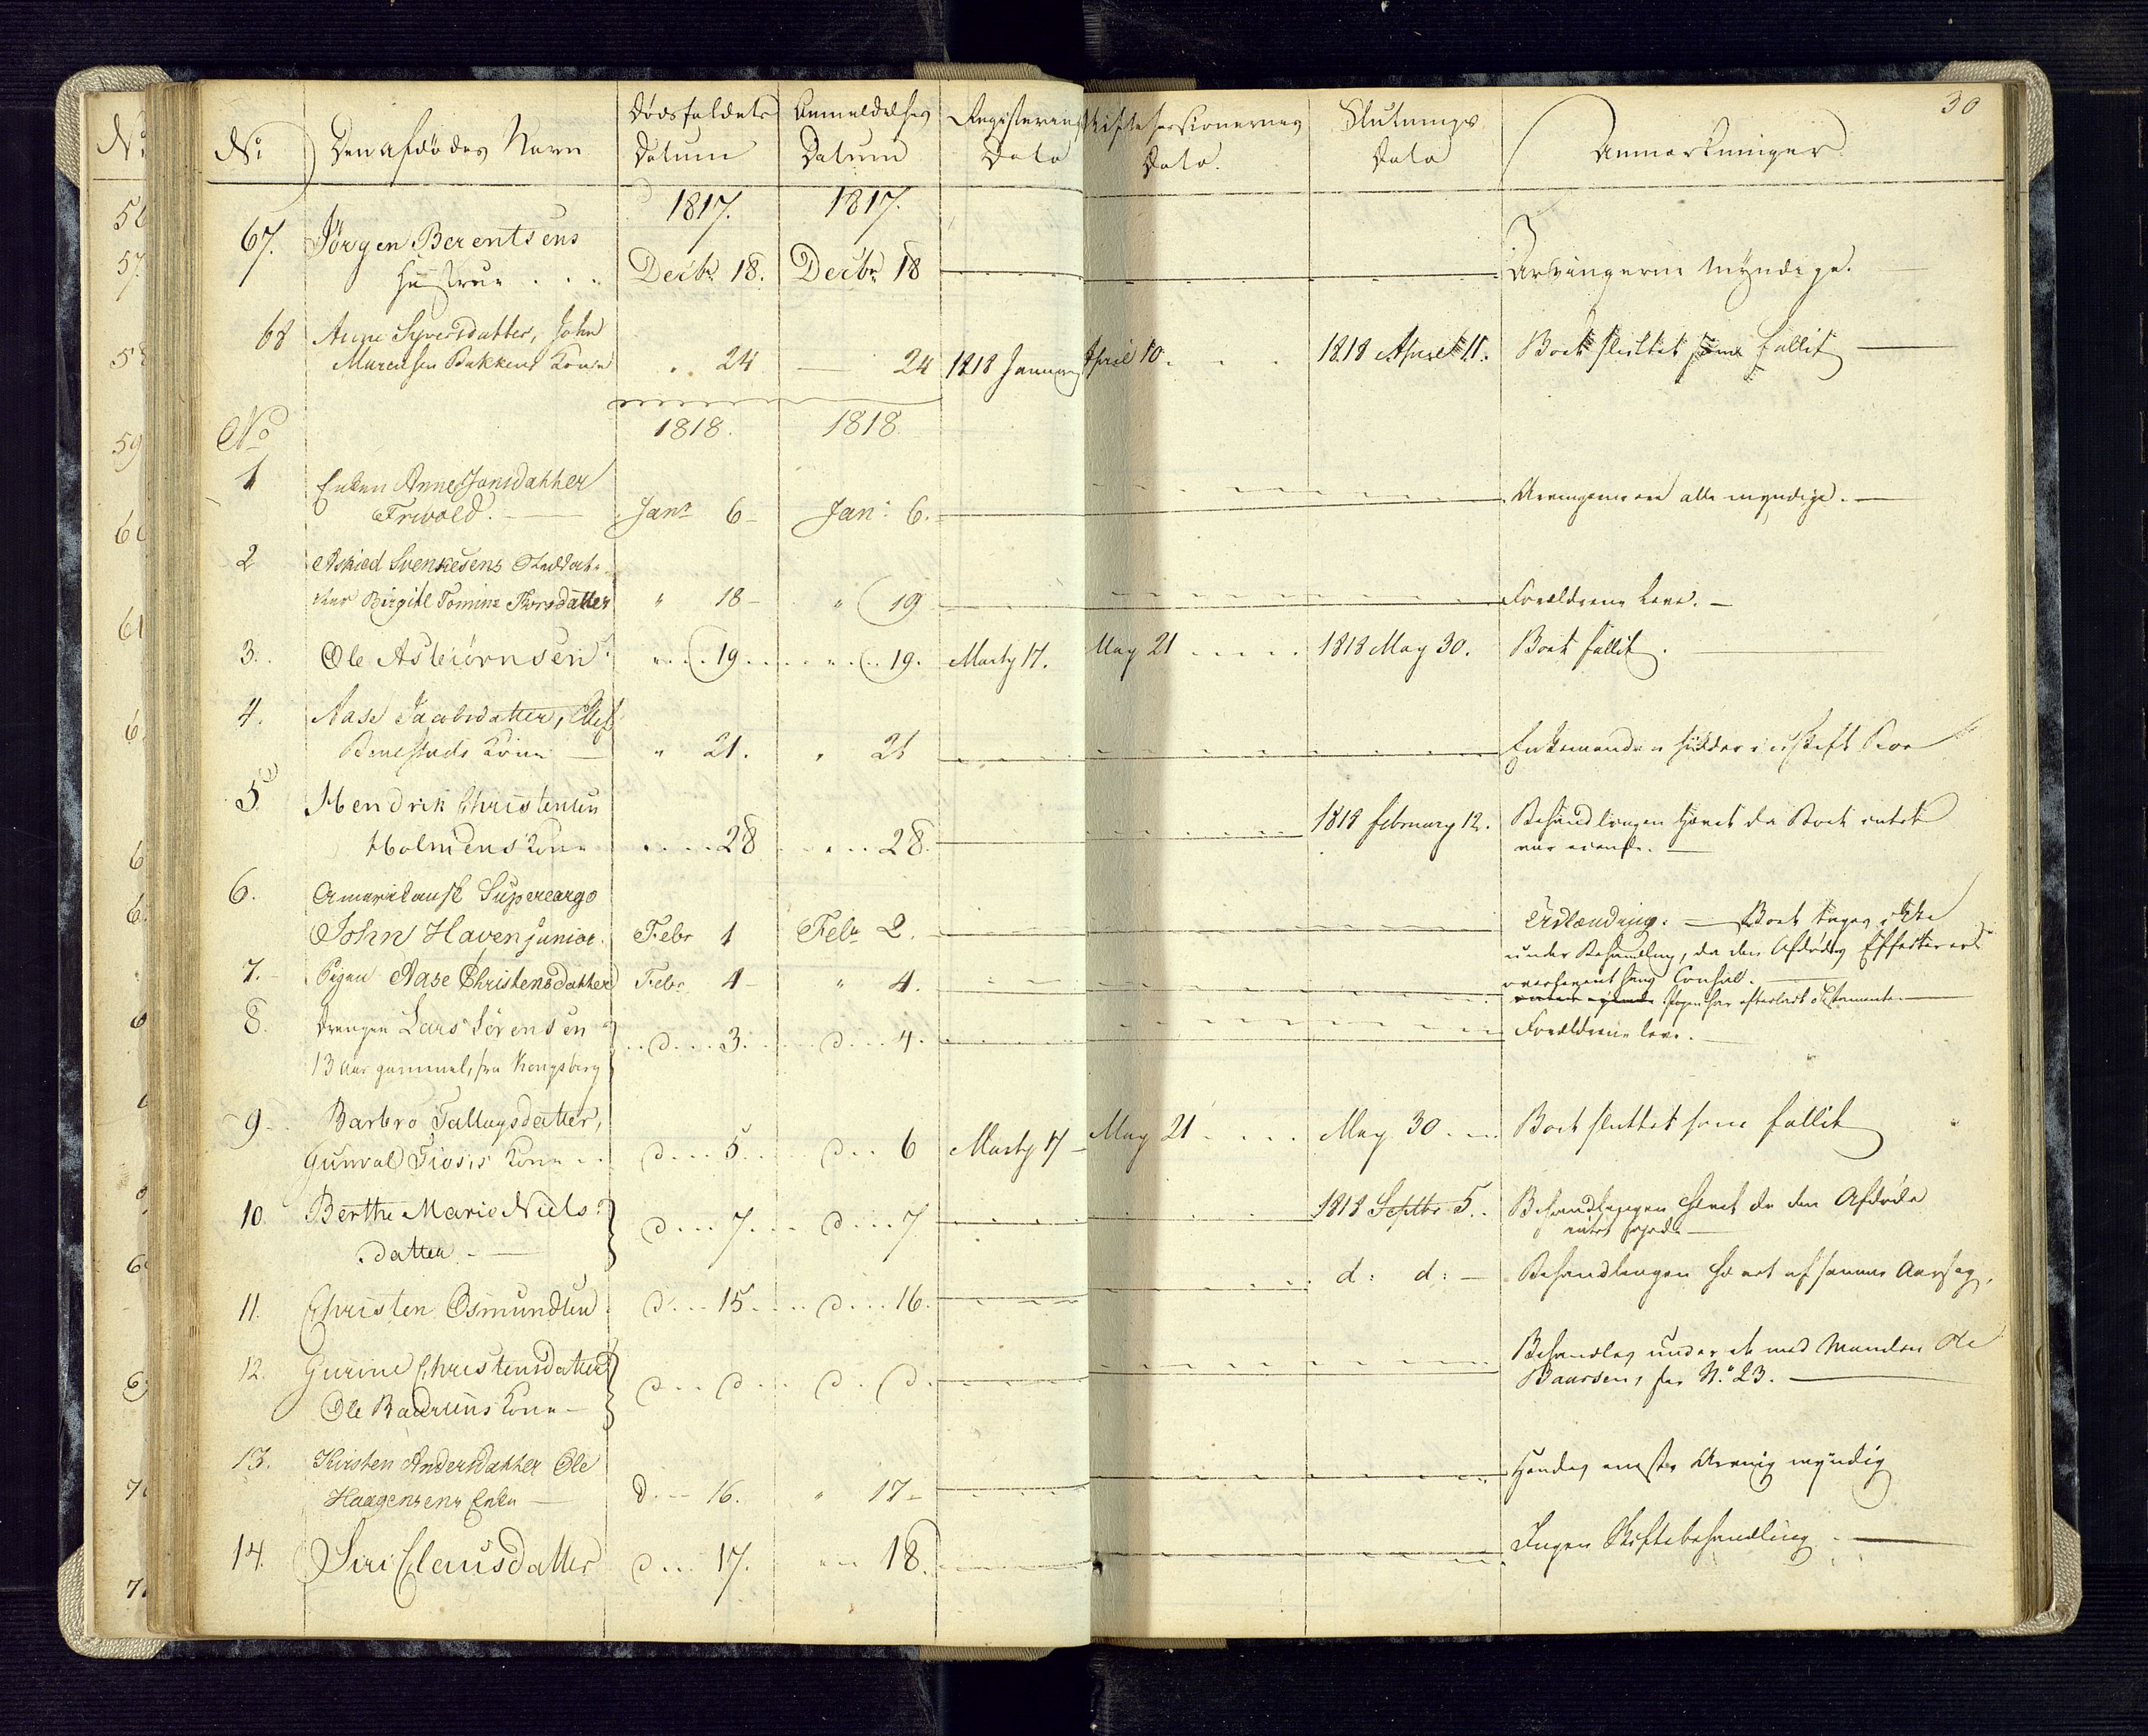 30
No Den afdødes Navn Dødsfaldets Datum Anmeldelses Datum Registerings Dato Skiftesessionernes Dato. Slutnings Dato Anmærkninger
1817. 1817.
67. Jørgen Berentsens
Hustrue . . . Decbr 18. Decbr 18 Arvingerne Myndige.
68 Anne Syversdatter, John
Bakkens Kone „ 24 — 24 1818 January April 10. 1818 April 11. Boet sluttet som fallit
No 1818. 1818.
1 Enken Anne Jonsdatter
Frivold. Janr 6 Jan: 6. Arvingerne ere alle myndige.
2 Svenkesens
Birgitte Tomine „ 18 „ 19 Forældrene leve.
3. Ole Asbiørnsen „ 19 „ 19. Marty 17. May 21 1818 May 30. Boet fallit.
4. Aase Jacobsdatter,
Kone „ 21. „ 21 Enkemanden sidder i uskift Boe
5. Hendrik Christensen
Holmens Kone „ 28 „ 28. 1818 February 12. Behandlingen hævet da Boet intet
var eiende.
6. Amerikansk Supercargo
John Haven junior. Febr 1 Febr 2. Udlænding. — Boet tages ikke
under Behandling, da den Afdødes Effecter ere
overleveret hans Consul.
7. Pigen Aase Christensdatter Febr 4 „ 4. efterladt Testamente.
8. Drengen Lars Sørensen
13 Aar gammel, fra Kongsberg d 3. d 4. Forældrene leve.
9. Barbro Tallagsdatter,
Gunvald Kone d 5 d 6 Marty 17 May 21 May 30 Boet sluttet som fallit
10. Berthe Marie Niels-
datter d 7 d 7 1818 Septbr 5. Behandlingen hævet da den Afdøde
intet eyede
11. Christen Osmundsen d 15 d 16. d: d: — Behandlingen hævet af samme Aarsag.
12. Gurine Christensdatter
Ole Kone d d d d. Behandles under et med Manden Ole
Baarsen, see No 23.
13. Kirsten Andersdatter Ole
Haagensens Enke d 16. „ 17 Hendes eneste Arving myndig
14. Siri Clausdatter d 17. „ 18. Ingen Skiftebehandling.